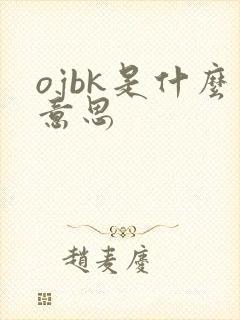 ojbk是什麼
意思
趙麦慶